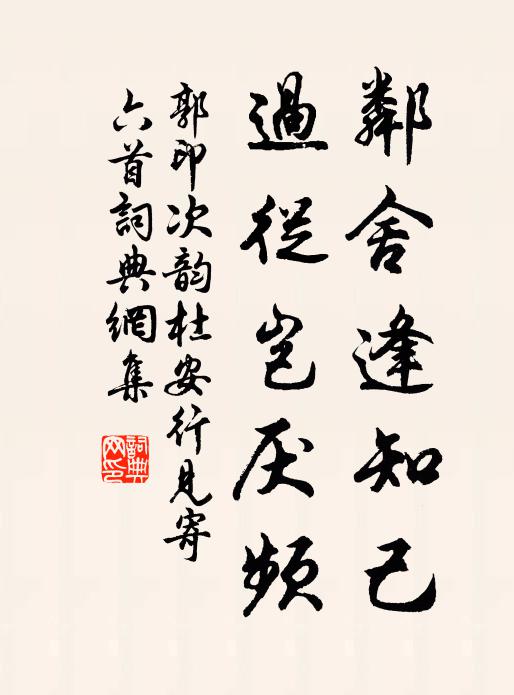 鄰舍逢知己
過從豈厌頻
郭印次韵杜安行見寄
六首詞典網集
詞典
网印